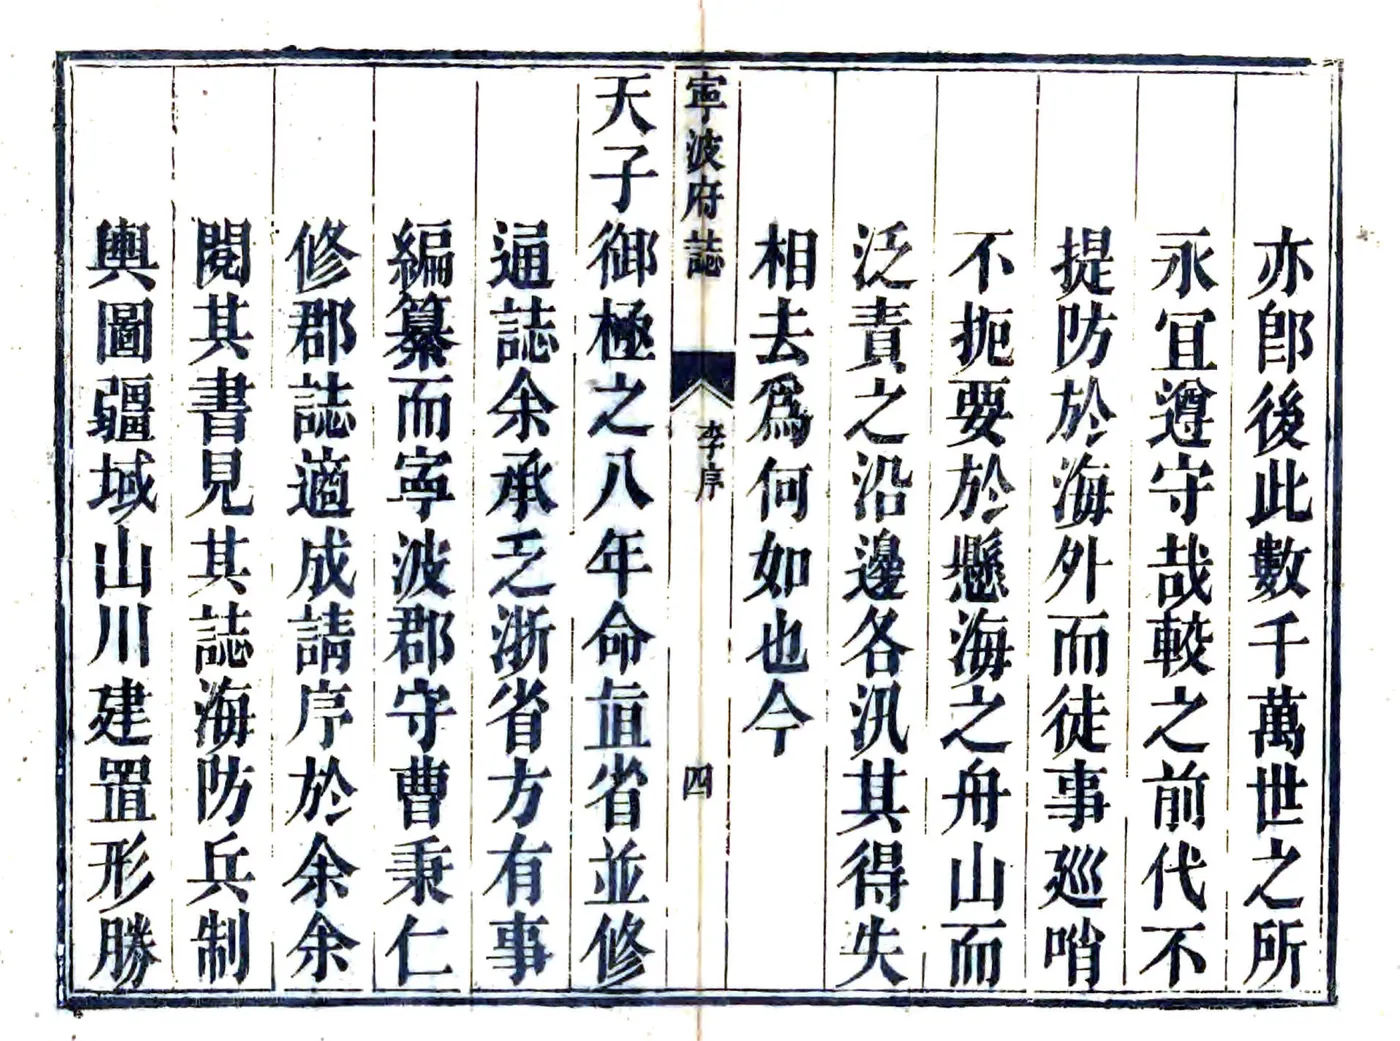 亦卽後此數千萬世之所
永宜遵守哉較之前代不
提防於海外而徒事廵哨
不扼要於懸海之舟山而
泛責之沿邊各汛其得失
相去爲何如也今
寧波府誌
李序
四
天子御極之八年命直省並修
通誌余承乏浙省方有事
編纂而寧波郡守曹秉仁
修郡誌適成請序於余余
閱其書見其誌海防兵制
輿圖疆域山川建置形勝